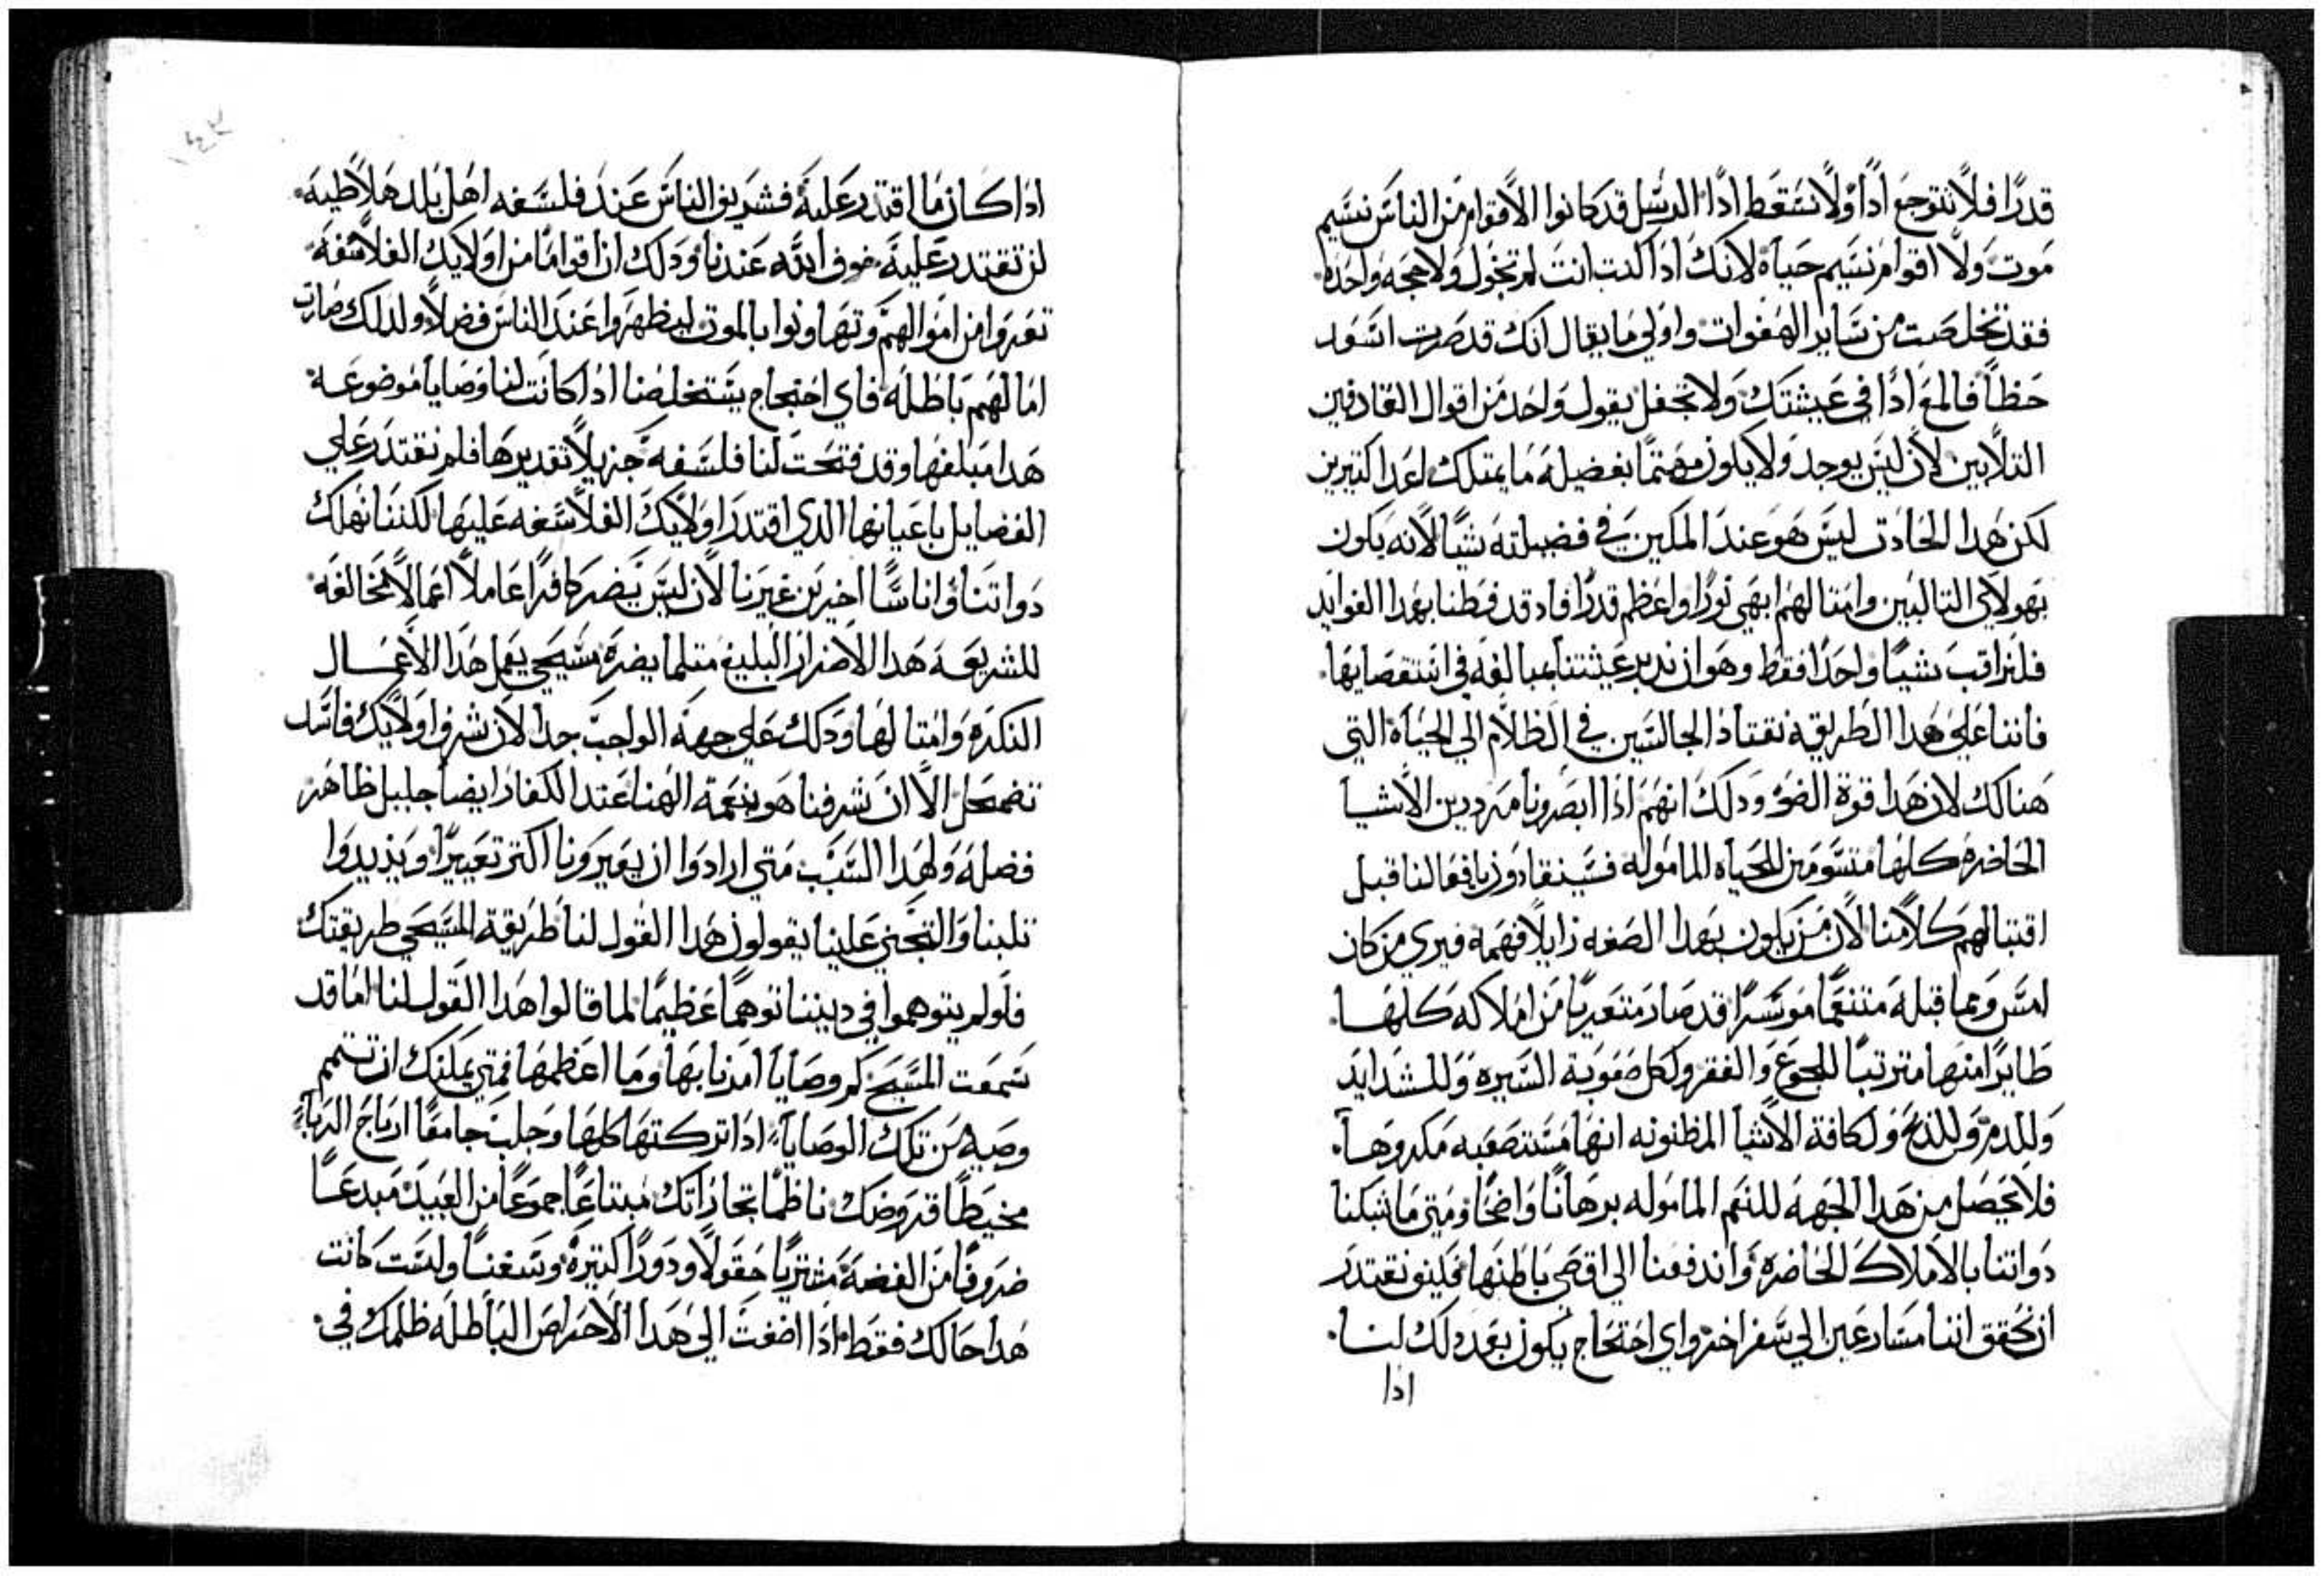 قدرًا فلا نتوجع اذًا ولا نسقط اذًا الرسل قد كانوا لاقوام من الناس نسيم
موت ولاقوام نسيم حياة لانك اذا كنت انت لم تخول ولا حجه واحده
فقد تخلصت من ساير الهفوات واولي ما يقال انك قد صرت اسعد
حظاً فالمع اذًا في عيشتك ولا تحفل بقول واحد من اقوال القادفين
التلابين لان ليس يوجد ولا يكون مهتمًا بفضيله ما يمتلك اعدا كتيرين
لكن هدا الحادت ليس هو عند المكين في فضيلته شيًا لانه يكون
بهولاي التالبين وامتالهم ابهي نورًا واعظم قدرًا فاد قد فطنا بهدا الفوايد
فلنراقب شيًا واحدًا فقط وهو ان ندبر عيشتنا بمبالغه في استقصايها
فاننا علي هدا الطريقه نقتاد الجالسين في الظلام الي الحياة التي
هنالك لان هدا قوة الضو ودلك انهم اذا ابصرونا مزدرين الاشيا
الحاضره كلها متسومين للحياه الماموله فسينقادون بافعالنا قبل
اقتبالهم كلامنا لان من يكون بهدا الصفه زايلًا فهمه فيري من كان
امس وما قبله متنعمًا موسرًا قد صار متعريًا من املاكه كلها
طايرًا منها مترتبًا للجوع والفقر ولكل صعوبة السيره وللشدايد
وللدم وللدبح ولكافة الاشيا المظنونه انها مستصعبه مكروهـا
فلا يحصل من هدا الجهه للنعم الماموله برهانًا واضحًا ومتي ما شبكنا
دواتنا بالاملاك الحاضره واندفعنا الي اقصي باطنها فاين نقتدر
ان نحقق اننا مسارعين الي سفر اخر واي احتجاج يكون بعد دلك لنـا
اذا
اذا كان ما اقتدر عليه فشريف الناس عند فلسفه اهل بلد هلاطيه
لن تقتدر عليه خوف الله عندنا ودلك ان اقوامًا من اولايك الفلاسفه
تعروا من اموالهم وتهاونوا بالموت ليظهروا عند الناس فضلًا ولدلك صارت
امالهم باطله فاي احتجاج يستخلصنا اذا كانت لنا وصايا موضوعـة
هدا مبلغها وقد فتحت لنا فلسفه جزيلًا تقديرها فلم نقتدر علي
الفضايل باعيانها الدي اقتدر اولايك الفلاسفه عليها لكننا نهلك
دواتنا واناسًا اخيرين غيرنا لان ليس يضر كافرًا عاملًا اعمالًا مخالفه
للشريعـه هدا الاضرار البليغ متلما يضره مسيحي يعمل هدا الاعمـال
النكره وامتالها ودلك علي جهة الواجب جدا لان شرف اولايك فاسد
تضمحل الا ان شرفنا هو بنعمة الهنا عند الكفار ايضًا جليل ظاهر
فضله ولهدا السبب متي ارادوا ان يعيرونا اكتر تعييرًا ويزيدوا
تلبنا والتجني علينا يقولون هدا القول لنا طريقة المسيحي طريقتك
فلو لم يتوهموا في ديننا توهمًا عظيمًا لما قالوا هدا القول لنا اما قد
سمعت المسيح كم وصايا امرنا بها وما اعظمها فمتي يمكنك ان تتمم
وصيه من تلك الوصايا اذا تركتها كلها وجلبت جامعًا ارباح الربا
مخيطًا قروضك ناظمًا تجاراتك مبتاعًا جموعًا من العبيد مبدعـًا
ضروفًا من الفضه مشتريًا حقولًا ودورًا كتيره وسفنـا وليست كانت
هدا حالك فقط اذا اضفت الي هدا الاحراص الباطله ظلمك في